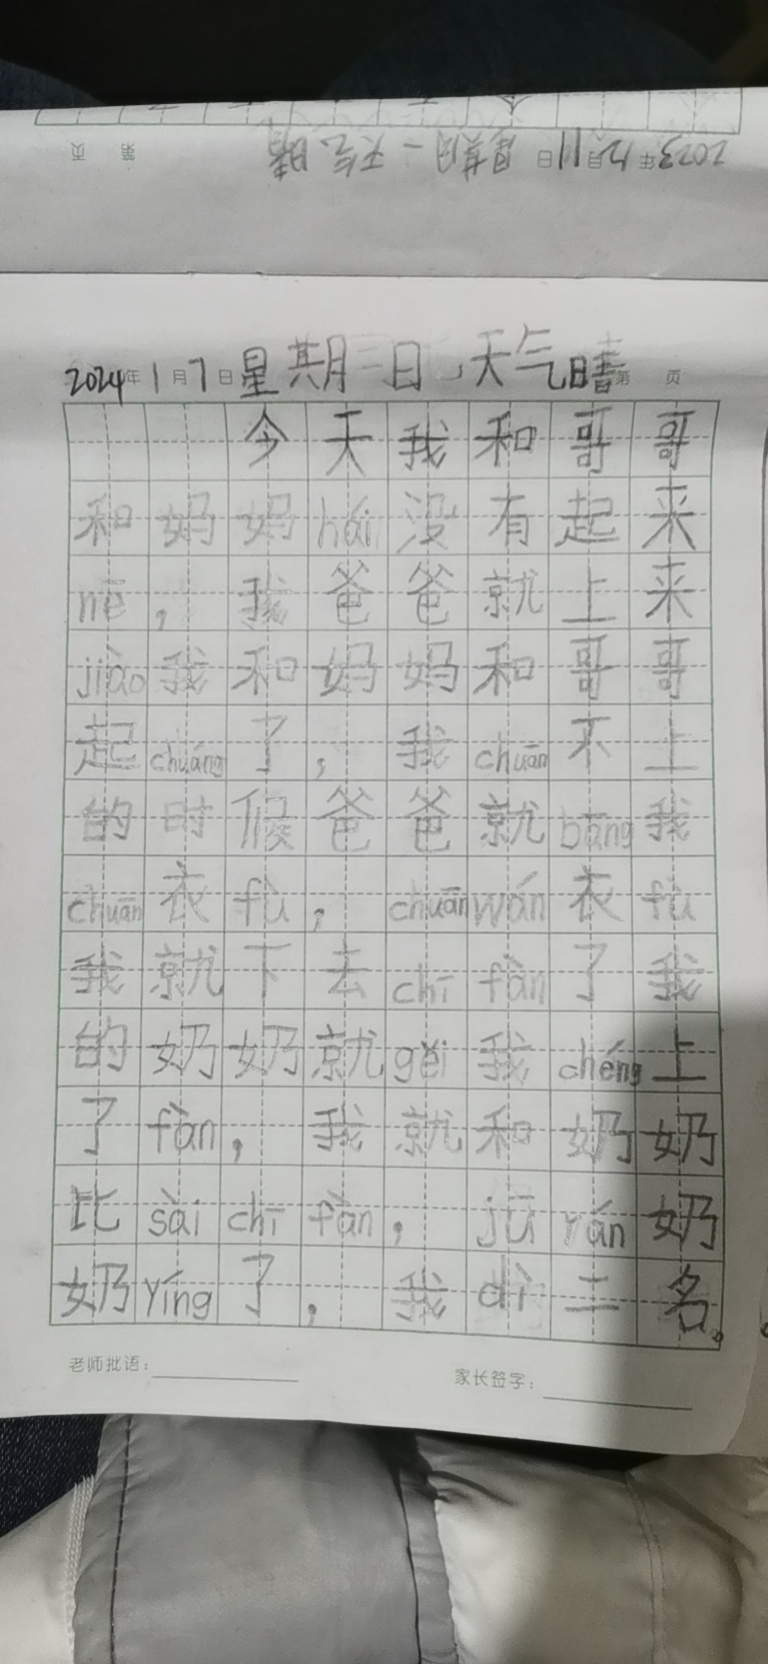 2023年12月11日 星期一 天气晴 第 页
2024年1月7日星期日,天气晴 第 页
今天我和哥哥
和妈妈hái没有起来
nē,我爸爸就上来
jiào我和妈妈和哥哥
起chuáng了,我chuān不上
的时候爸爸就bāng我
chuān衣fù,chuānwán衣fù
我就下去chī fàn了我
的奶奶就gěi我chéng上
了fàn,我就和奶奶
比sài chī fàn,jū rán奶
奶yíng了,我dì二名。
老师批语:
家长签字: